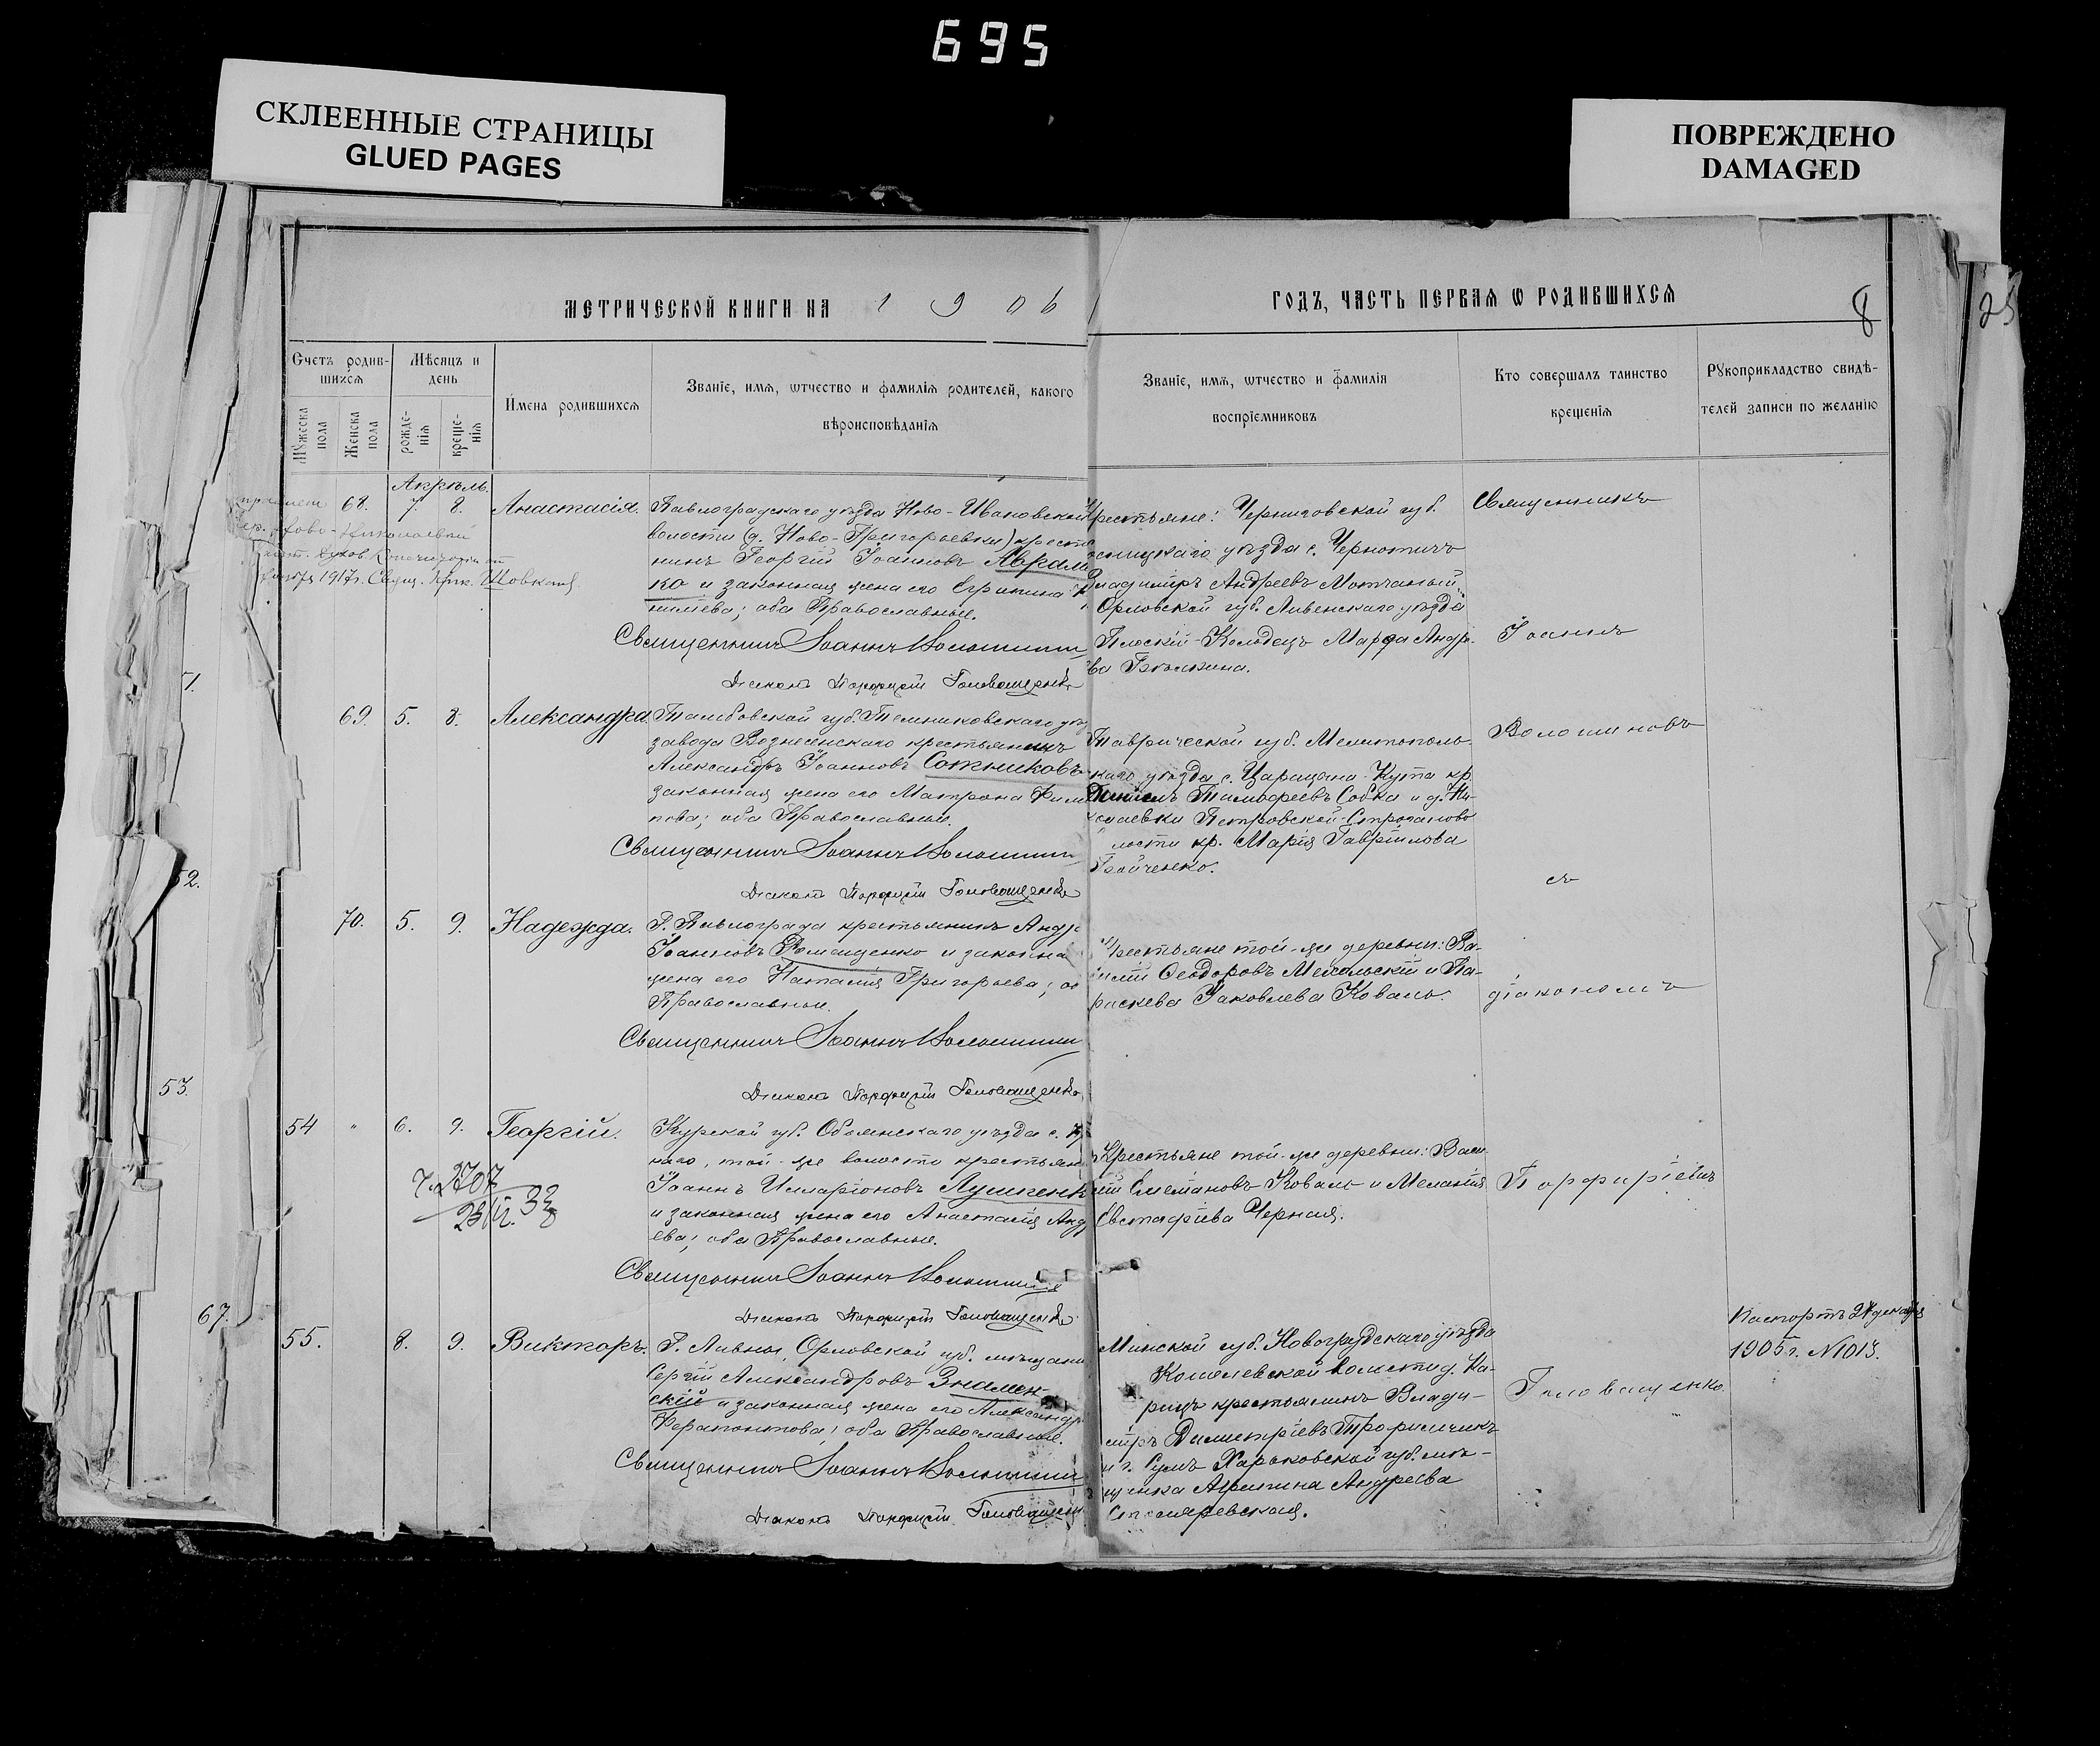 695
СКЛЕЕННЫЕ СТРАНИЦЫ
GLUED PAGES
ПОВРЕЖДЕНО
DAMAGED
МЕТРИЧЕСКОЙ КНИГИ НА 1906
ГОДЪ, ЧАСТЬ ПЕРВАЯ Ѡ РОДИВШИХСЯ
8
25
Счетъ родив-
шихся
Мѣсяцъ и
день
Мꙋжеска
пола
Женска
пола
рожде-
нія
креще-
нія
Имена родившихся
Званіе, имя, ѿчество и фамилія родителей, какого
вѣроисповѣданія
Званіе, имя, ѿчество и фамилія
воспріемниковъ
Кто совершалъ таинство
крещенія
Рꙋкоприкладство свидѣ-
телей записи по желанію
Апрѣль.
68. 7. 8. Анастасія.
Павлоградскаго уѣзда Ново-Ивановской
волости (д. Ново-Григорьевки) крест
нинъ Георгій Іоанновъ Аврам
ко и законная жена его Агрипина
нилиева; оба Православные.
Священникъ Іоаннъ Волошинов
Діаконъ Порфирій Головащенко
Ново-Николаевкой
1917г. Свящ.
рестьяне: Черниговской губ.
уѣзда с. Чернотичъ
Владиміръ Андреевъ Мотчаный
Орловской губ. Ливенскаго уѣзда
Плоскій-Колодезь Марфа Андре
ва
Священникъ
Іоаннъ
Волошиновъ
съ
діакономъ
Порфиріемъ
Головащенко.
51.
69. 5. 8. Александра.
Тамбовской губ. Темниковскаго уѣз
завода Вознесенскаго крестьянинъ
Александръ Іоанновъ Сотниковъ
законная жена его Матрона Фили
пова; оба Православные.
Священникъ Іоаннъ Волошинов
Діаконъ Порфирій Головащенко
Таврической губ. Мелитополь-
скаго уѣзда с. Царицына-Кута кр.
Даніилъ Тимофеевъ Собка и д. Ни-
колаевки Петровской
лости кр. Марія Гавріилова
52.
70. 5. 9. Надежда.
Г. Павлограда крестьянинъ Андре
Іоанновъ Ромащенко и законна
жена его Наталія Григорьева; об
Православные.
Священникъ Іоаннъ Волошинов
Діаконъ Порфирій Головащенко
Крестьяне той-же деревни: Ва-
силій Ѳеодоровъ и Па-
раскева Іаковлева Коваль.
53.
54 " 6. 9. Георгій.
2707
Курской губ. Обоянскаго уѣзда с.
наго, той-же волости крестьян
Іоаннъ Илларіоновъ Лушпенк
и законная жена его Анастасія Анд
ева; оба Православные.
Священникъ Іоаннъ Волошинов
Діаконъ Порфирій Головащенко
Крестьяне той-же деревни: Васи
лій Коваль и Меланія
Евстафіева Черная.
67.
55. 8. 9. Викторъ.
Г. Ливны, Орловской губ. мѣщани
Сергій Александровъ Знамен-
скій и законная жена его Александр
Ферапонтова; оба Православные.
Священникъ Іоаннъ Волошинов
Діаконъ Порфирій Головащенк
Минской губ. Новогрудскаго уѣзда
Кошелевской волости д.
крестьянинъ Влади-
міръ Димитріевъ Трофимчикъ
и г. Сумъ Харьковской губ. мѣ-
щанка Агрипина Андреева
Столяревская.
Паспортъ 24 декабря
1905г. №1013.